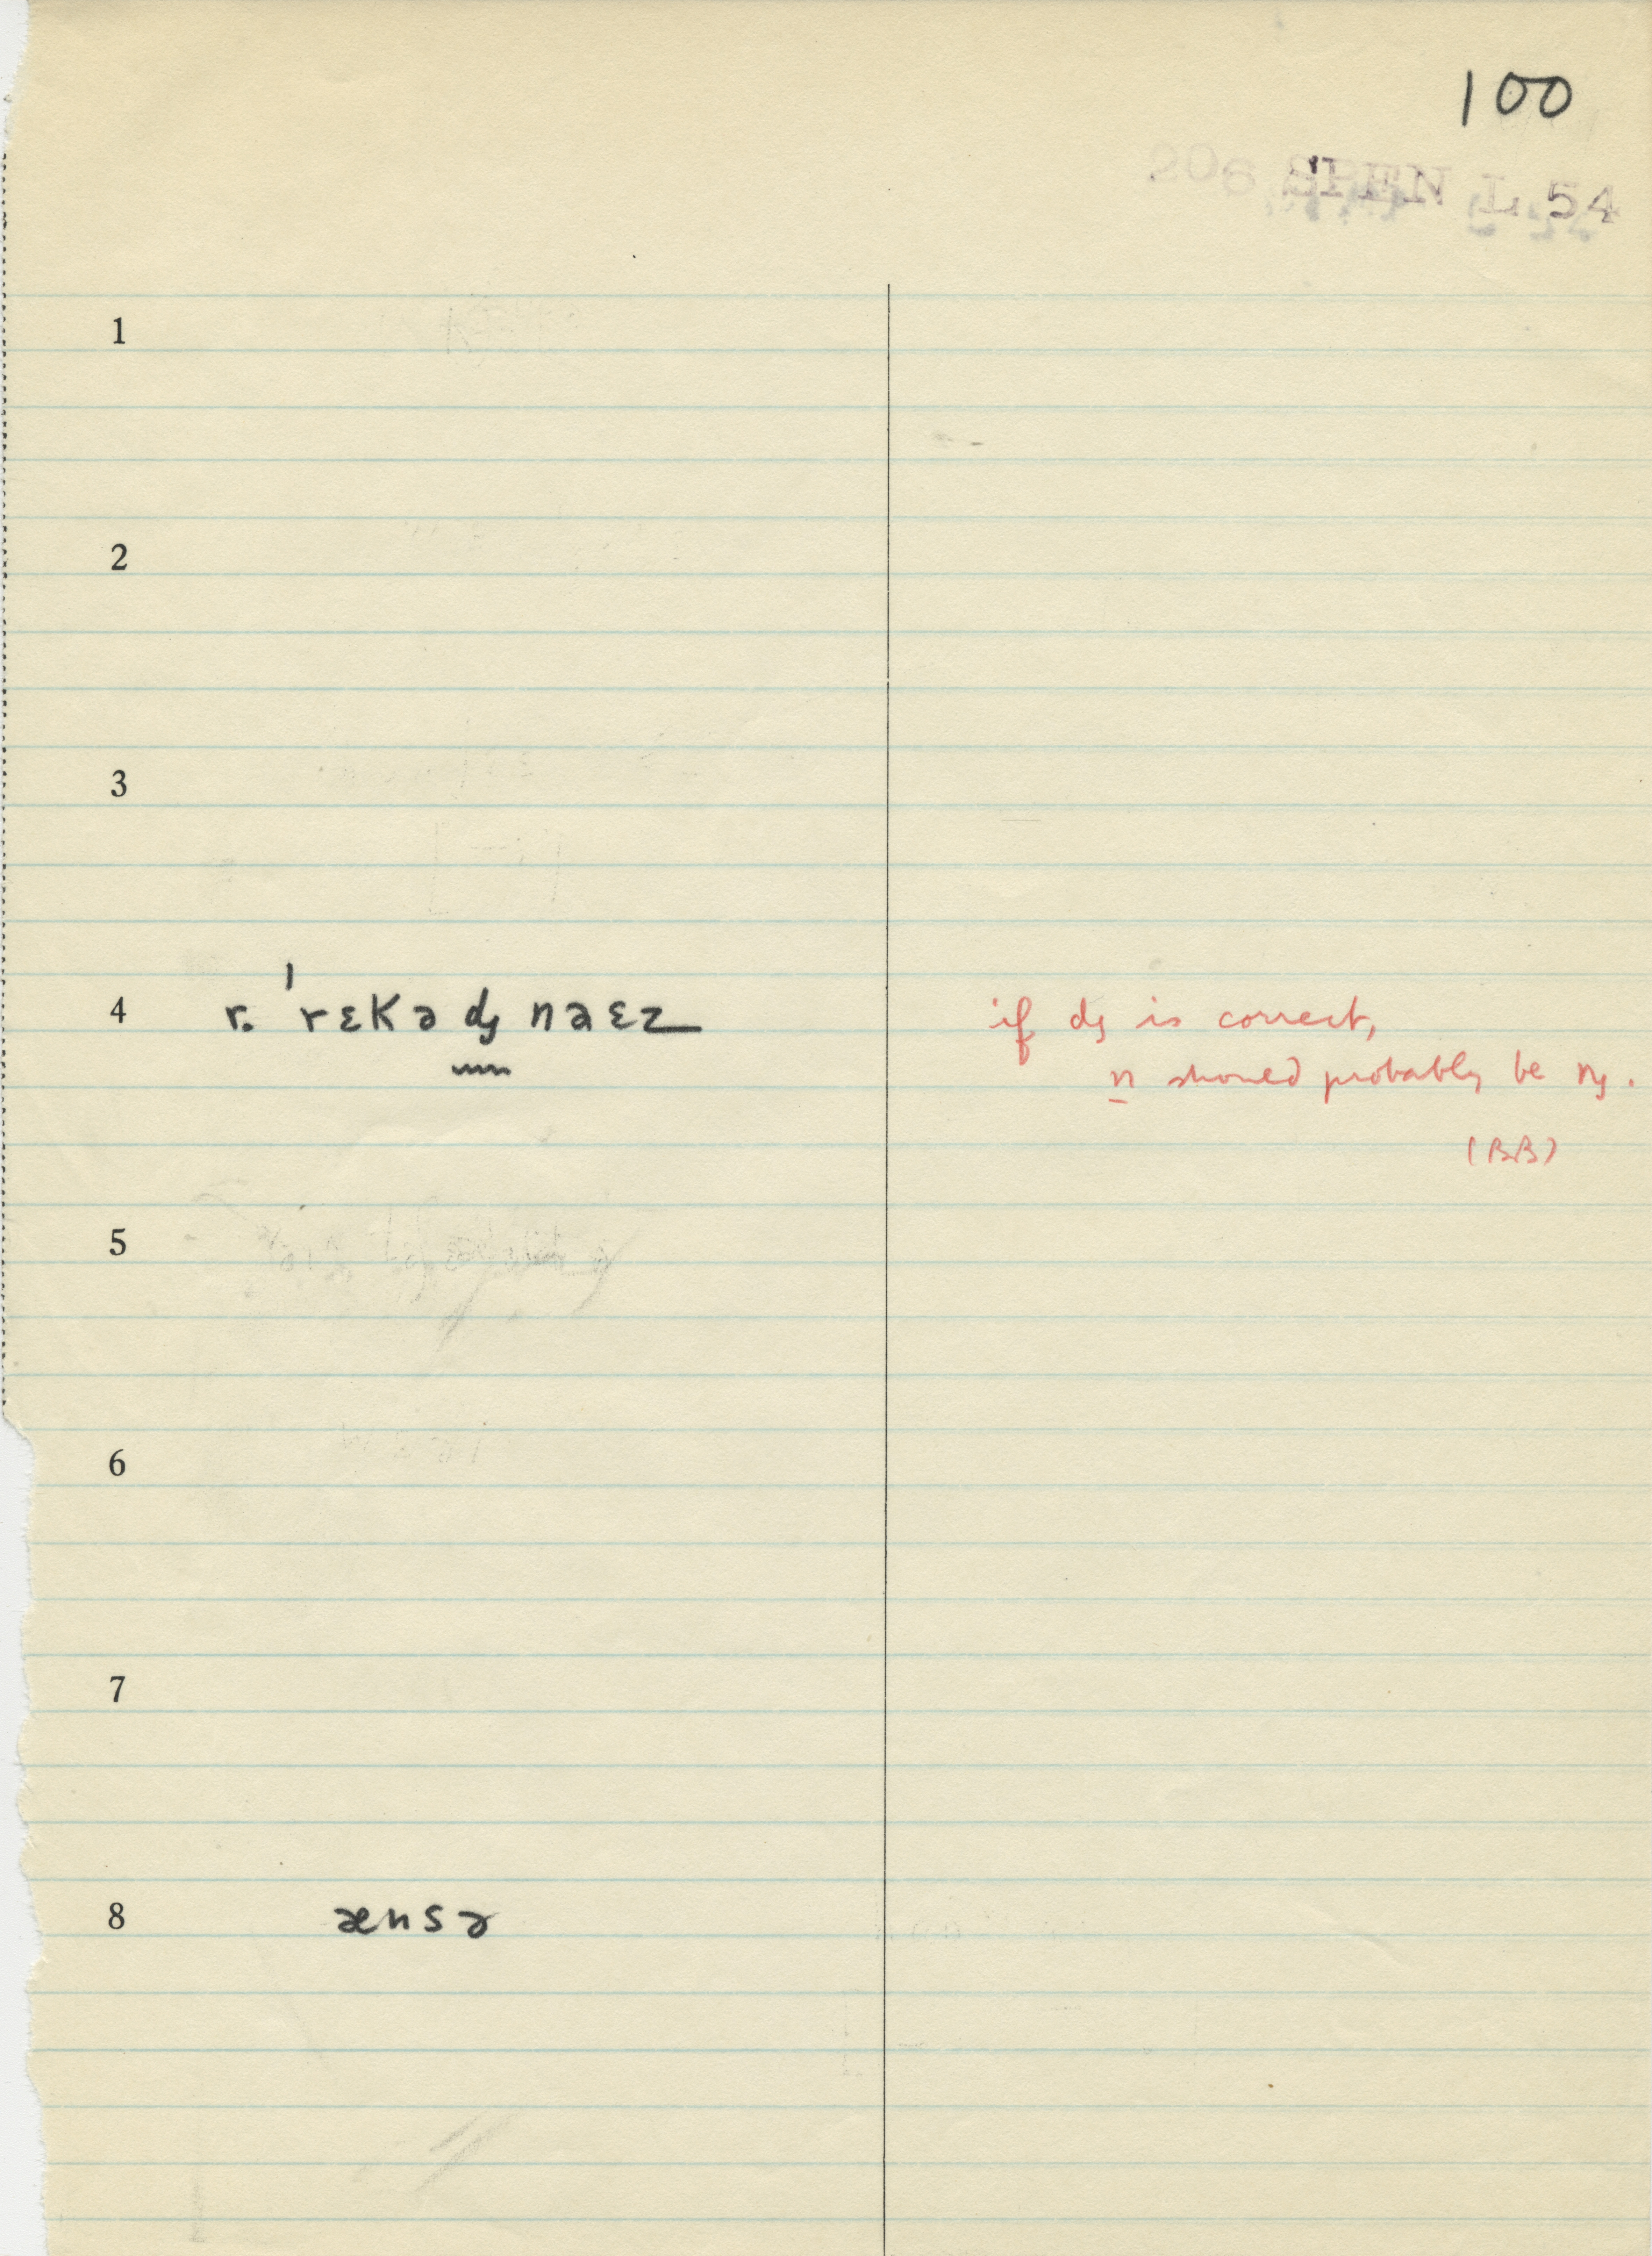 100
L. 54
1
2
3
4 r. ˈrɛkəᶁnəɛz if ᶁ is correct,
n should probably be ᶇ.
(BB)
5
6
7
8 ænsə